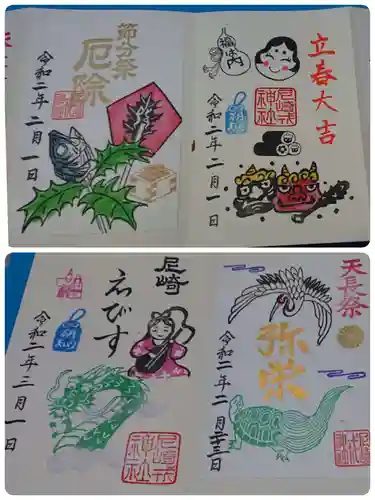 立春大吉
福は内
尼崎戎神社
令和二年二月一日
節分祭
厄除
令和二年二月一日
天長祭
弥栄
令和二年二月二十三日
尼崎
えびす
尼崎戎神社
令和二年三月一日